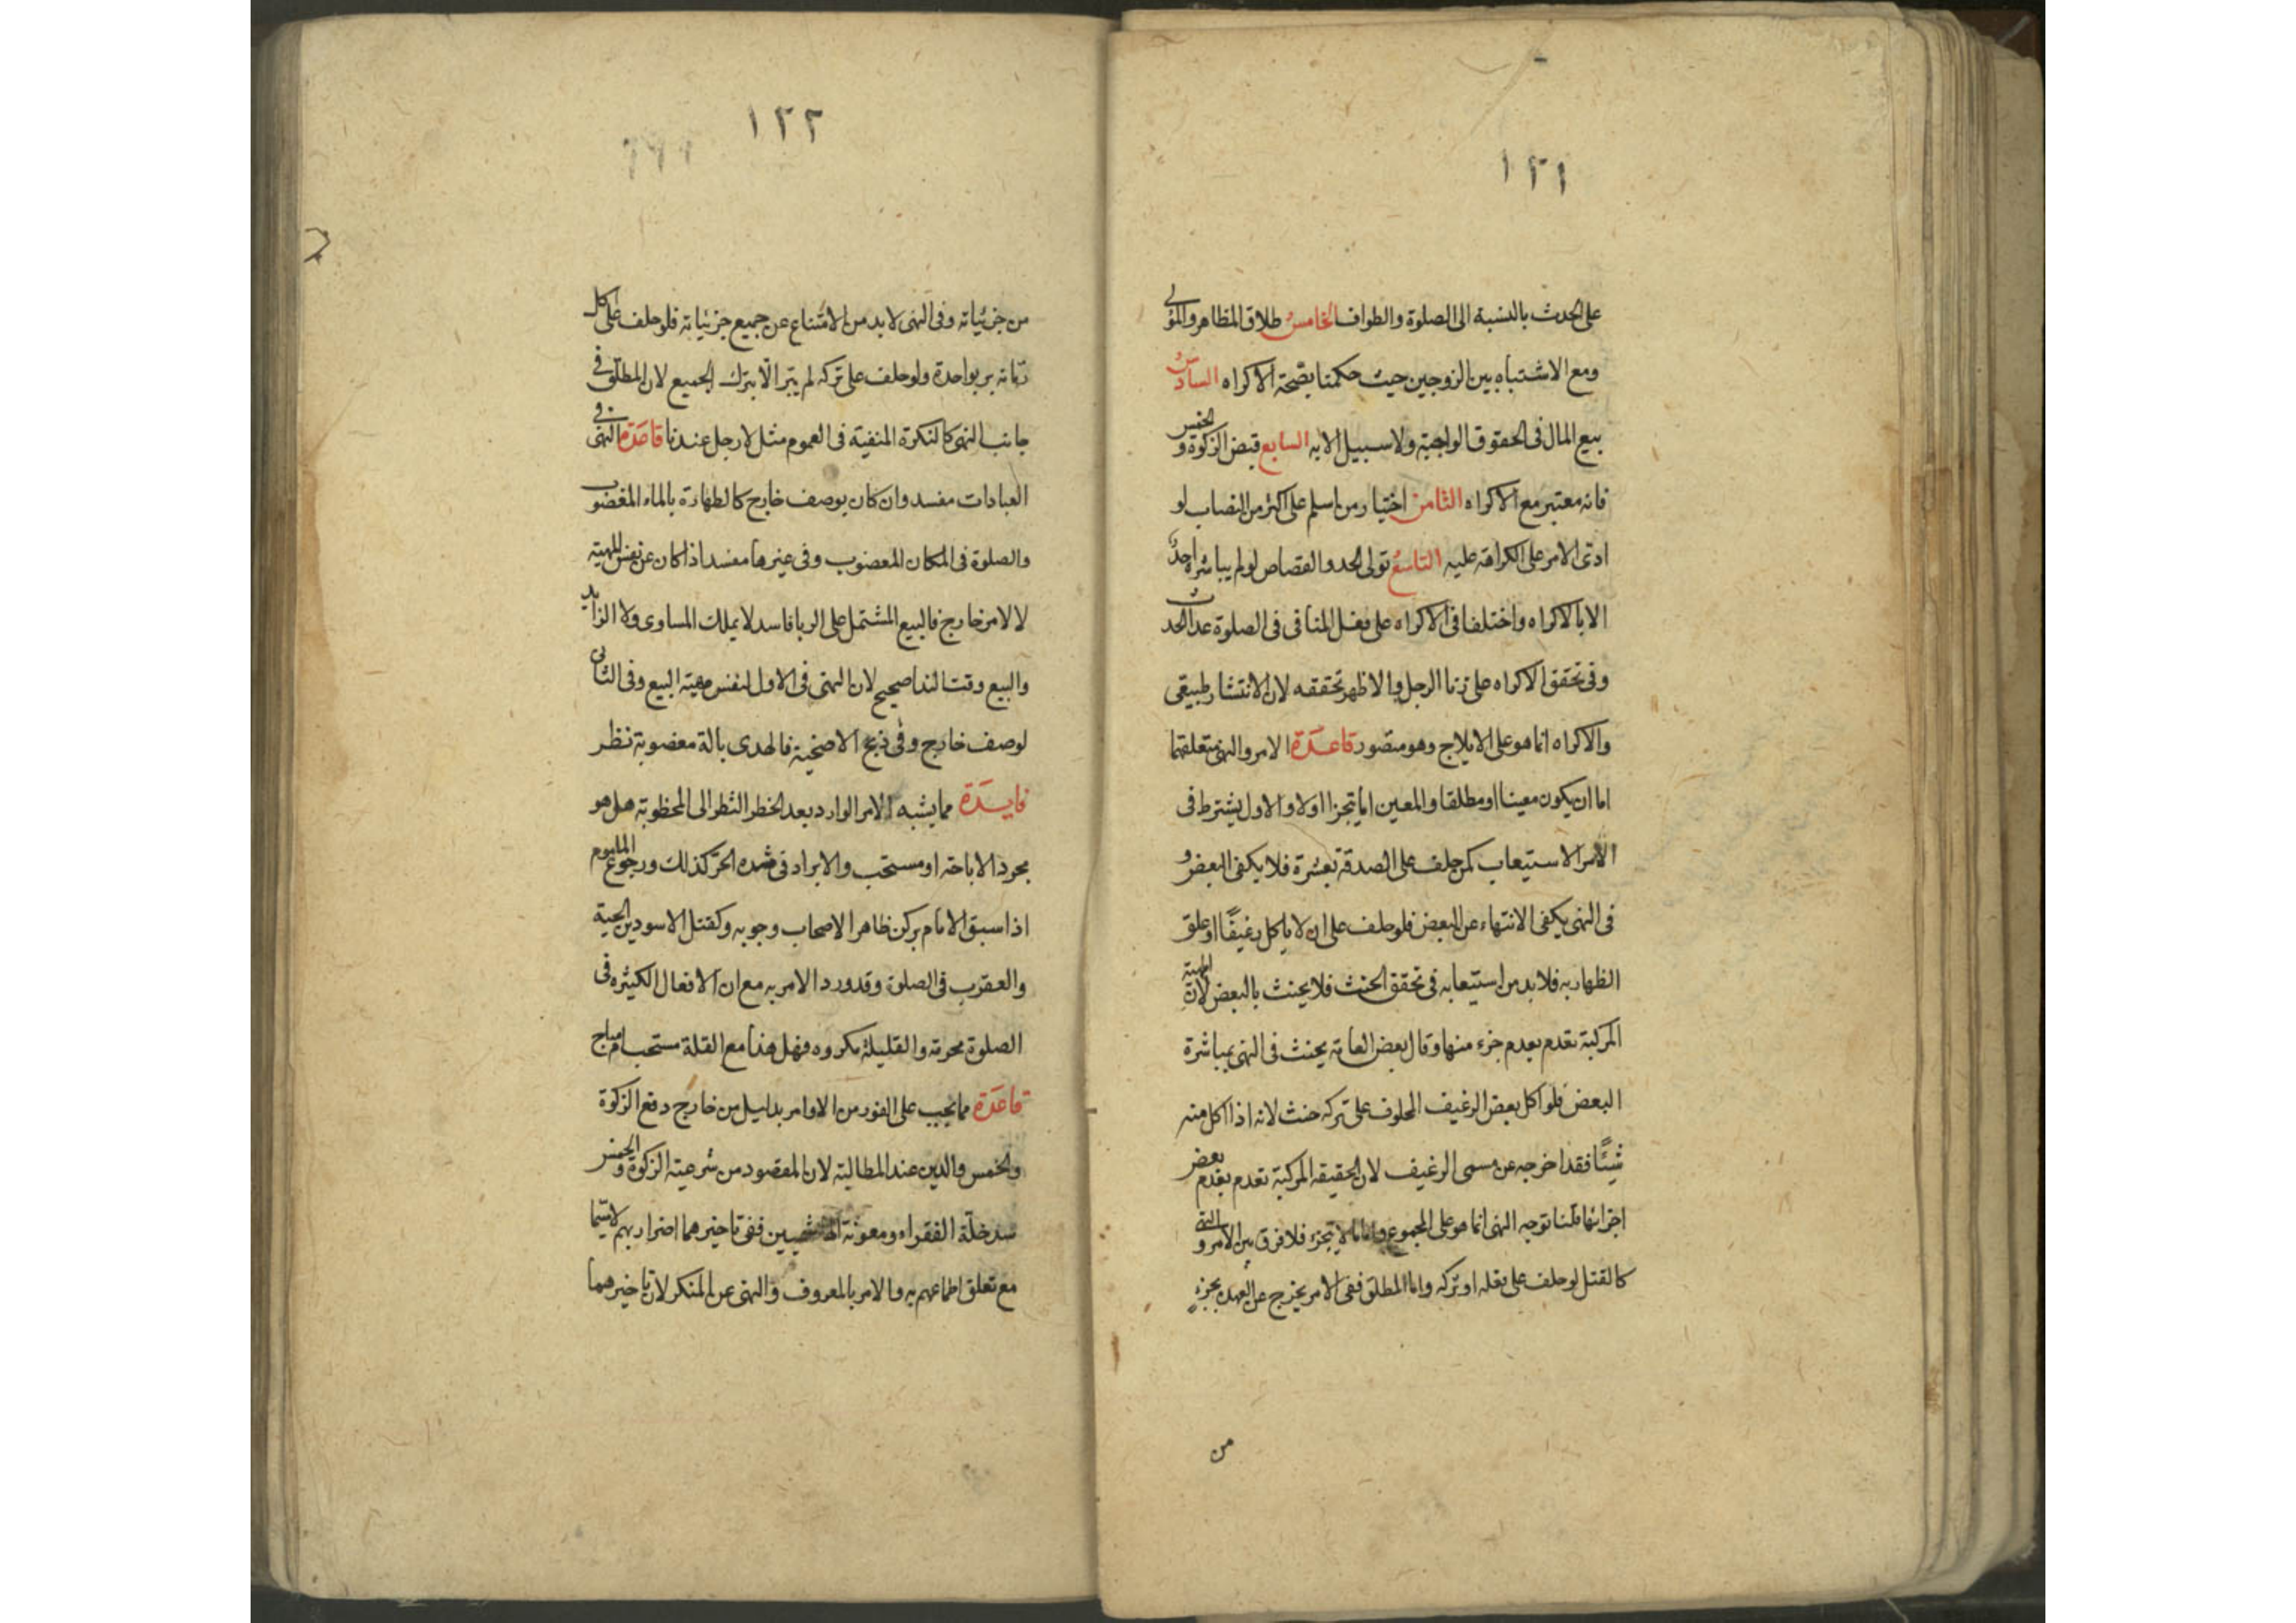 ١٢١
على الحدث بالنسبة الى الصلوة والطواف الخامس طلاق المظاهر والمولى
ومع الاشتباه بين الزوجين حيث حكمنا بصحة الاكراه السادس
بيع المال فى الحقوق الواجبة ولا سبيل الا به السابع قبض الزكوة والخمس
فانه معتبر مع الاكراه الثامن اختيار من اسلم على اكثر من النصاب لو
ادى الامر على الكراهة عليه التاسع تولى الحد والقصاص لو لم يباشره احد
الا بالاكراه واختلفا فى الاكراه على فعل المنافى فى الصلوة عدا الحدث
وفى تحقق الاكراه على زنا الرجل والاظهر تحققه لان الانتشار طبيعى
والاكراه انما هو على الايلاج وهو متصور قاعدة الامر والنهى متعلقهما
اما ان يكون معينا او مطلقا والمعين اما يتجزا اولا والاول يشترط فى
الامر الاستيعاب كمن حلف على الصدقة بعشرة فلا يكفى البعض و
فى النهى يكفى الانتهاء عن البعض فلو حلف على ان لا ياكل رغيفًا او علق
الظهار به فلا بد من استيعابه فى تحقق الحنث فلا يحنث بالبعض لان المهية
المركبة تعدم بعدم جزء منها وقال بعض العامة يحنث فى النهى بمباشرة
البعض فلو اكل بعض الرغيف المحلوف على تركه حنث لانه اذا اكل منه
شيئًا فقد اخرجه عن مسمى الرغيف لان الحقيقة المركبة تعدم بعدم بعض
اجزائها قلنا توجه النهى انما هو على المجموع واما ما لا يتجزء فلا فرق بين الامر و النهى
كالقتل لو حلف على فعله او تركه واما المطلق ففى الامر يخرج عن العهدة بجزء
من
١٢٢
من جزئياته وفى النهى لا بد من الامتناع عن جميع جزئياته فلو حلف على اكل
رمانه بر بواحدة ولو حلف على تركه لم يبر الا بترك الجميع لان المطلق فى
جانب النهى كالنكرة المنفية فى العموم مثل لا رجل عندنا قاعدة النهى فى
العبادات مفسد وان كان بوصف خارج كالطهارة بالماء المغضوب
والصلوة فى المكان المغضوب وفى غيرها مفسد اذا كان عن نفس المهية
لا لامر خارج فالبيع المشتمل على الربا فاسد لا يملك المساوى ولا الزايد
والبيع وقت الندا صحيح لان النهى فى الاول لنفس مهية البيع وفى الثانى
لوصف خارج وفى ذبح الاضحية فالهدى بالة مغضوبة نظر
فايدة مما يشبه الامر الوارد بعد الخطر النظر الى المخطوبة هل هو
مجرد الاباحة او مستحب والابراد فى شده الحر كذلك ورجوع الماموم
اذا سبق الامام بركن ظاهر الاصحاب وجوبه وكقتل الاسودين الحية
والعقرب فى الصلوة وقد ورد الامر به مع ان الافعال الكثيره فى
الصلوة محرمة والقليلة مكروه فهل هذا مع القلة مستحب ام مباح
قاعدة مما يجب على الفور من الاوامر بدليل من خارج دفع الزكوة
والخمس والدين عند المطالبة لان المقصود من شرعية الزكوة والخمس
سد خلة الفقراء ومعونة الهاشميين ففى تاخيرهما اضرار بهم لا سيما
مع تعلق اطماعهم به والامر بالمعروف والنهى عن المنكر لان تاخيرهما